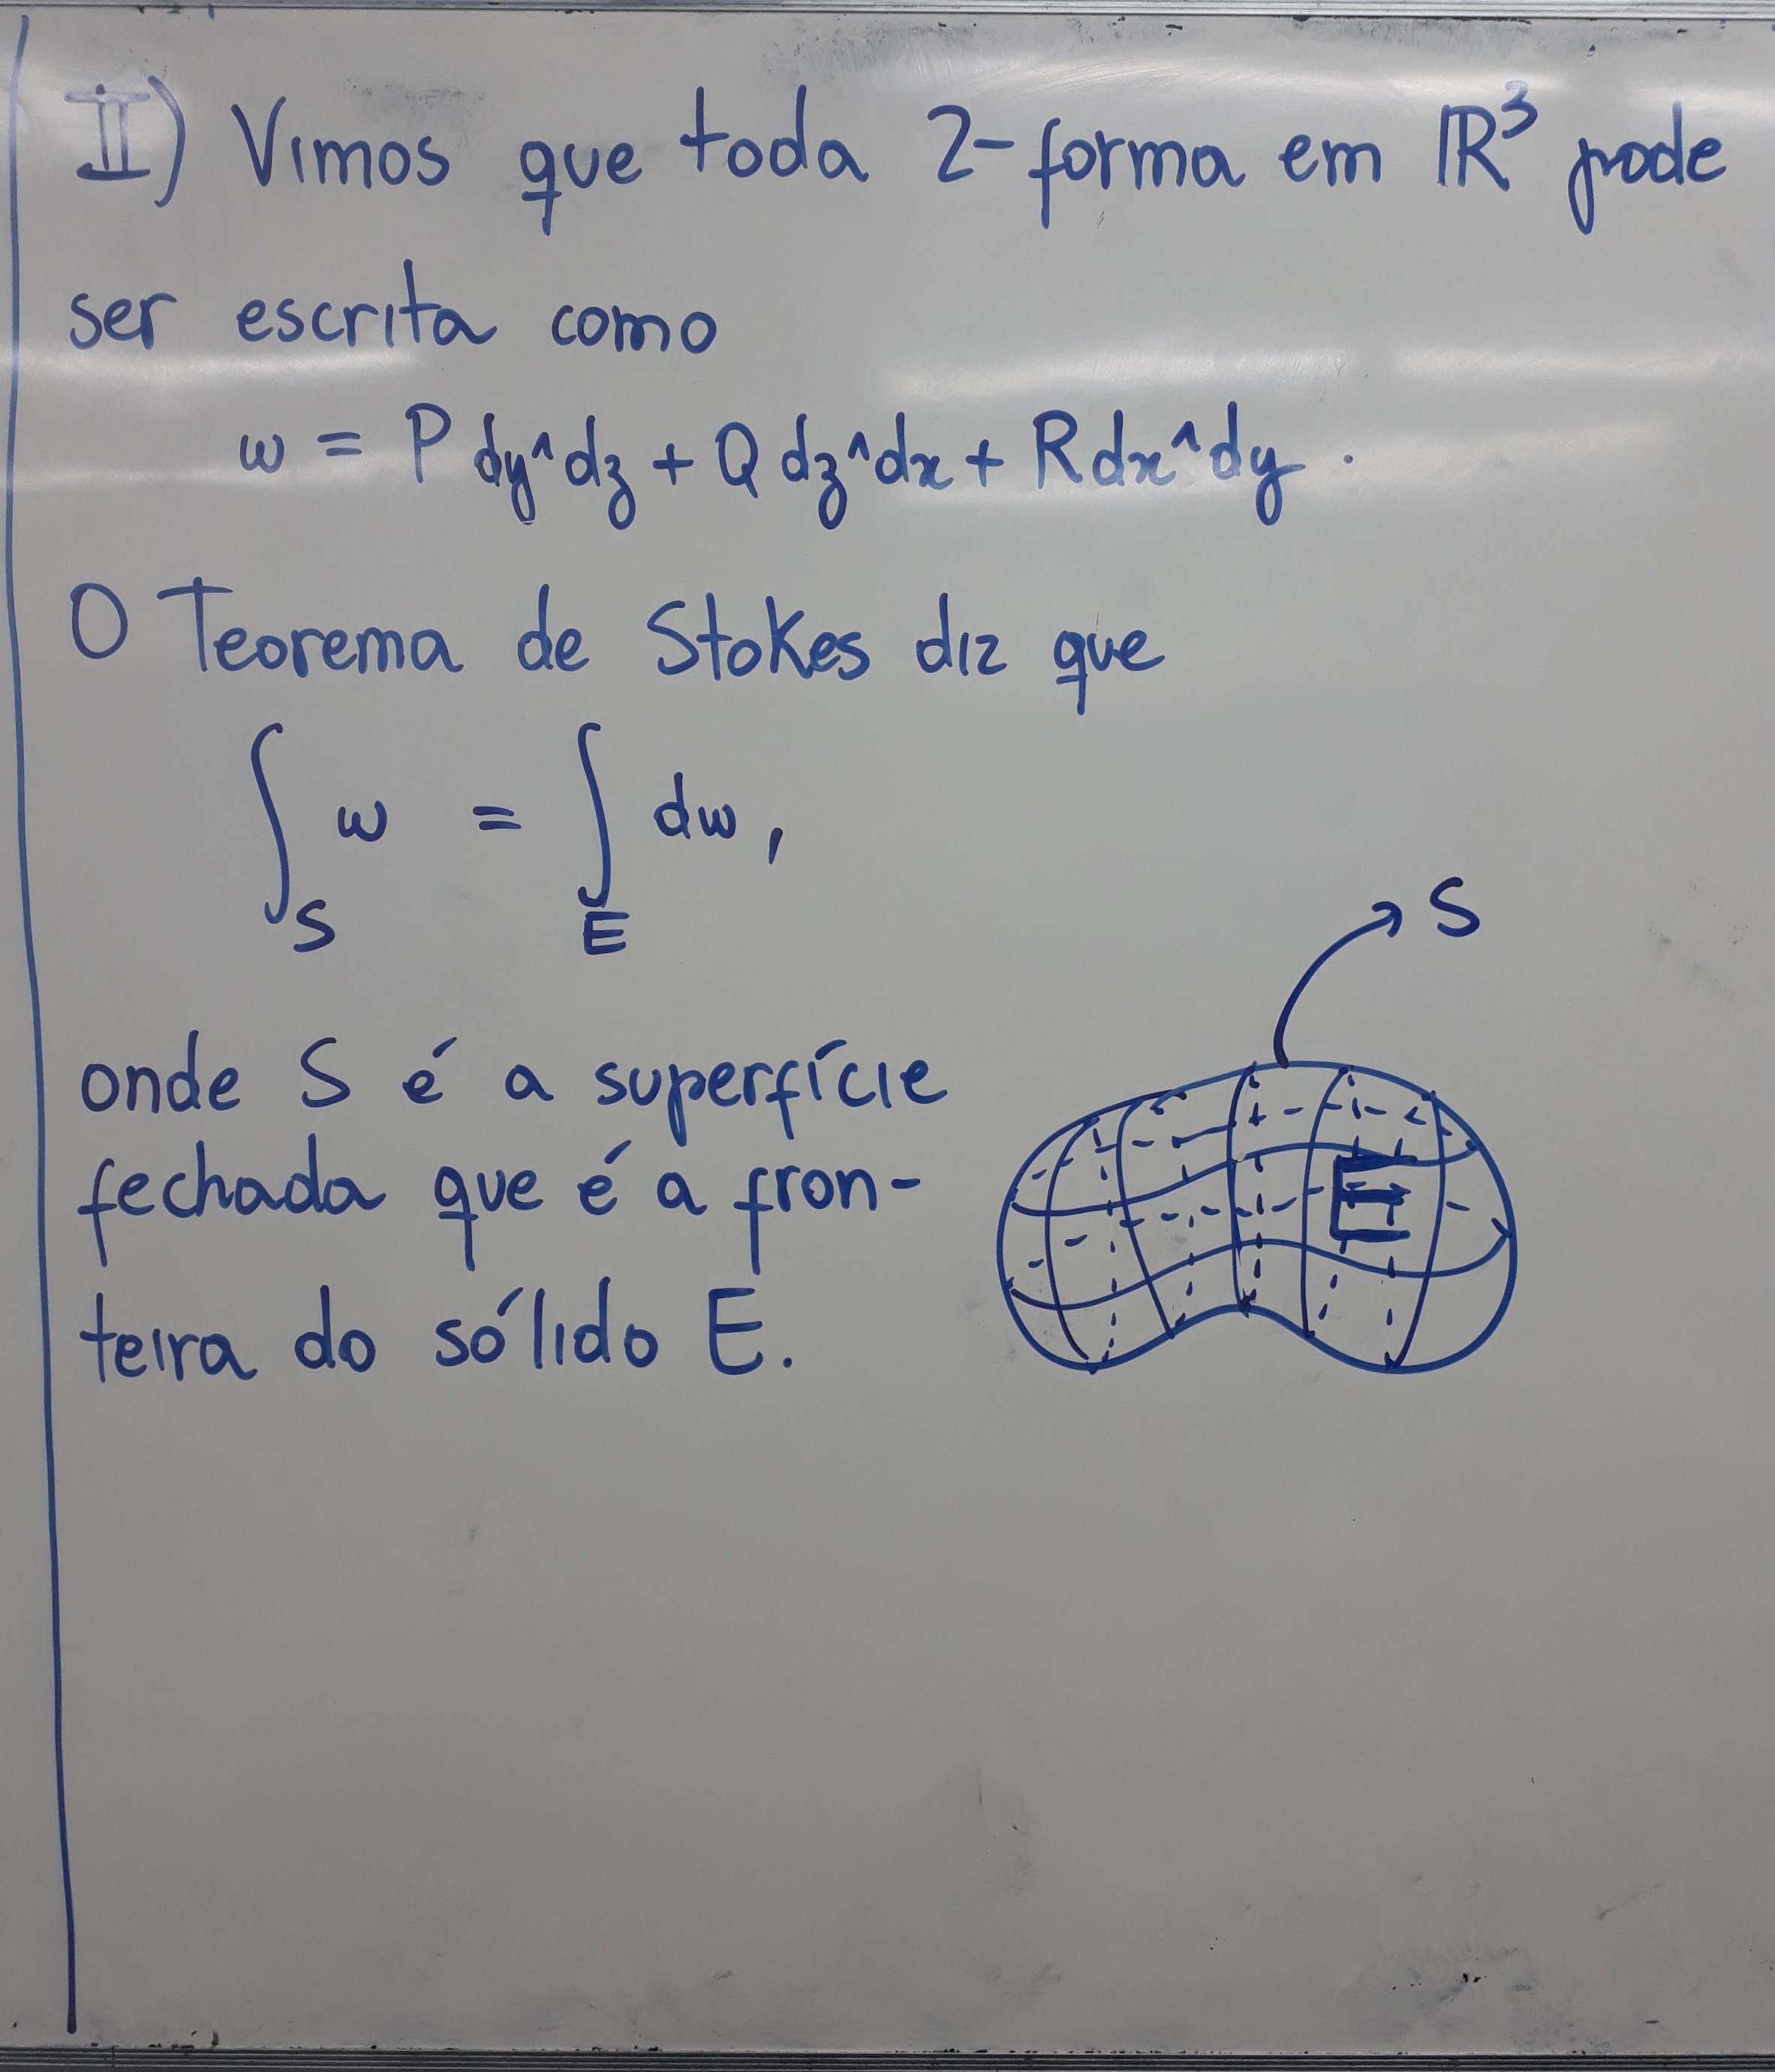 II) Vimos que toda 2-forma em ℝ³ pode
ser escrita como
ω = P dy^dz + Q dz^dx + R dx^dy .
O Teorema de Stokes diz que
∫_S ω = ∫_E dω,
S
onde S é a superfície
fechada que é a fron-
E
teira do sólido E.